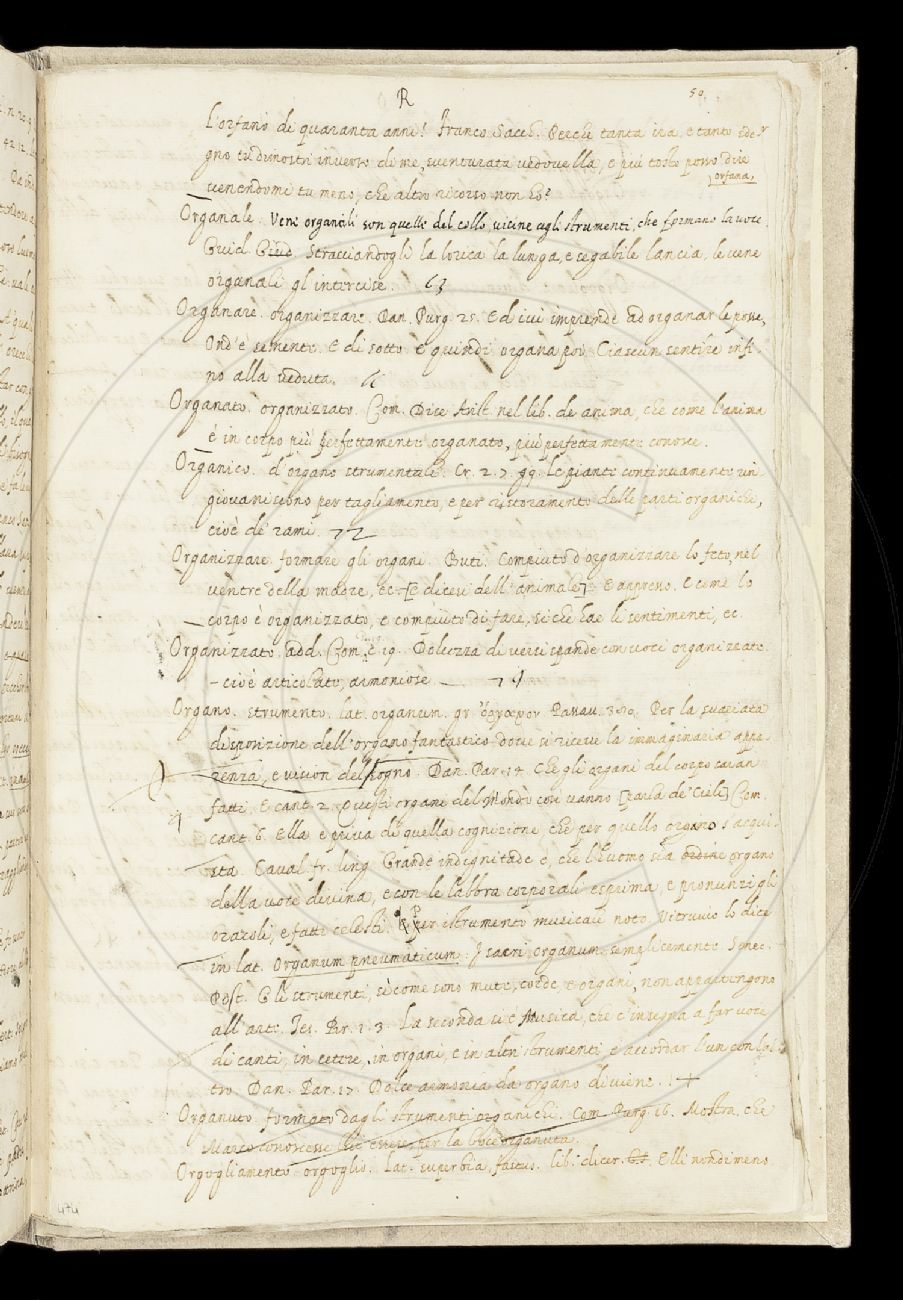 R 50
L'orfano di quaranta anni! Franco Sacch. Perchè tanta ira, e tanto sde-
gno tu dimostri inverso di me, sventurata vedovella, e più tosto posso dire
orfana,
venendomi tu meno, che altro ricorso non ho?
Organale. Vene organali son quelle del collo, vicine agli strumenti, che formano la voce.
Guid. Giud. Stracciandogli la lorica la lunga, e segabile lancia, le vene
organali gl' intercise. 63
Organare. organizzare. Dan. Purg. 25. Ed ivi imprende ad organar le posse,
Ond' è semente. E di sotto e quindi organa poi Ciascun sentire infi-
no alla veduta.
Organato. organizzato. Com. Dice Arist. nel lib. de anima, che come l'anima
è in corpo più perfettamente organato, più perfettamente conosce.
Organico. d' organo strumentale. Cr. 2. 7. 99. Le piante continuamente rin-
giovaniscono per tagliamento, e per ristoramento delle parti organiche,
cioè de' rami. 72
Organizzare. formare gli organi. Buti. Compiuto d' organizzare lo feto, nel
ventre della madre, ec. [E dicesi dell' animale] E appresso. E come lo
corpo è organizzato, e compiuto di fare, sì che hae li sentimenti, ec.
Organizzato. add. Com. 19. Dolcezza di versi spande con voci organizzate.
- cioè articolate, armoniose. 74
Organo. strumento. lat. organum. gr. ὄργανον Passav. 370. Per la svariata
disposizione dell' organo fantastico dove si riceve la immaginaria appa-
renza, e vision del sogno. Dan. Par. 17. Che gli organi del corpo saran
fatti. E cant. 2. Questi organi del Mondo così vanno [parla de' Cieli] Com.
cant. 6. Ella è priva di quella cognizione, che per quello organo s' acqui-
sta. Caval. fr. ling. Grande indegnitade è, che l' huomo sia ordine organo
della voce divina, e con le labbra corporali esprima, e pronunzi gli
oracoli, e fatti celesti. Per istrumento musicale noto. Vitruvio lo dice
in lat. Organum pneumaticum. J sacri, organum semplicemente. Senec.
Pist. Gli strumenti, sì come sono mute, corde, e organi, non appartengono
all' arte. Tes. Br. 1. 3. La seconda si è Musica, che c' insegna a far voce
di canti, in cetere, in organi, e in altri strumenti, e accordar l' un con l' al-
tro. Dan. Par. 17. Dolce armonia da organo di viene. +
Organuto. formato dagli strumenti organichi. Com. Purg. 16. Mostra, che
Marco conoscesse lui essere per la boce organuta.
Orgogliamento. orgoglio. lat. superbia, fastus. lib. dicer. Elli nondimeno
474